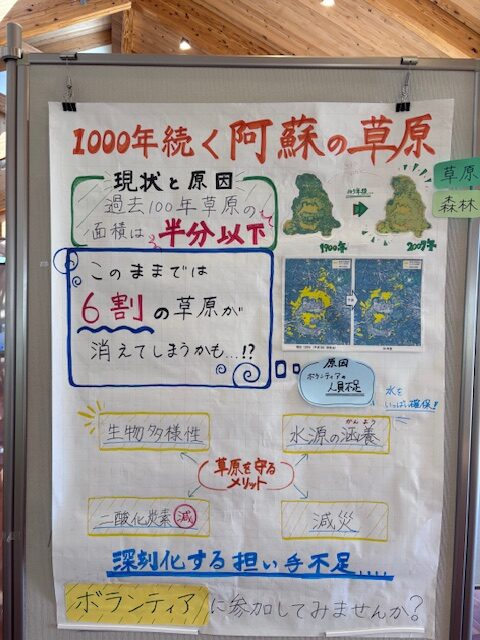 1000年続く阿蘇の草原
現状と原因
過去100年草原の
面積は半分以下
1900年
草原
森林
このままでは
6割の草原が
消えてしまうかも...!?
原因
ボランティアの
人員不足
水を
いっぱい確保!
生物多様性
かん よう
水源の涵養
草原を守る
メリット
二酸化炭素減
減災
深刻化する担い手不足....
ボランティアに参加してみませんか?